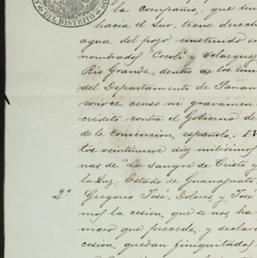 la compañia, que tien
hacia el Sur, tiene derech
agua del pozo
nombrados "Cocoli y Velasquez
Rio Grande, dentro de los lim
del Departamento de Panam
censo ni gravamen
crédito contra el Gobierno de
de la convención, española. IV
tos veintinueve diez milésimos
nas de "La Sangre de Cristo y
la Luz, Estado de Guanajuato
2º Gregorio José, Dolores y José
mos la cesion, que se nos ha
mero que precede, y declara
cesion, quedan finiquitados